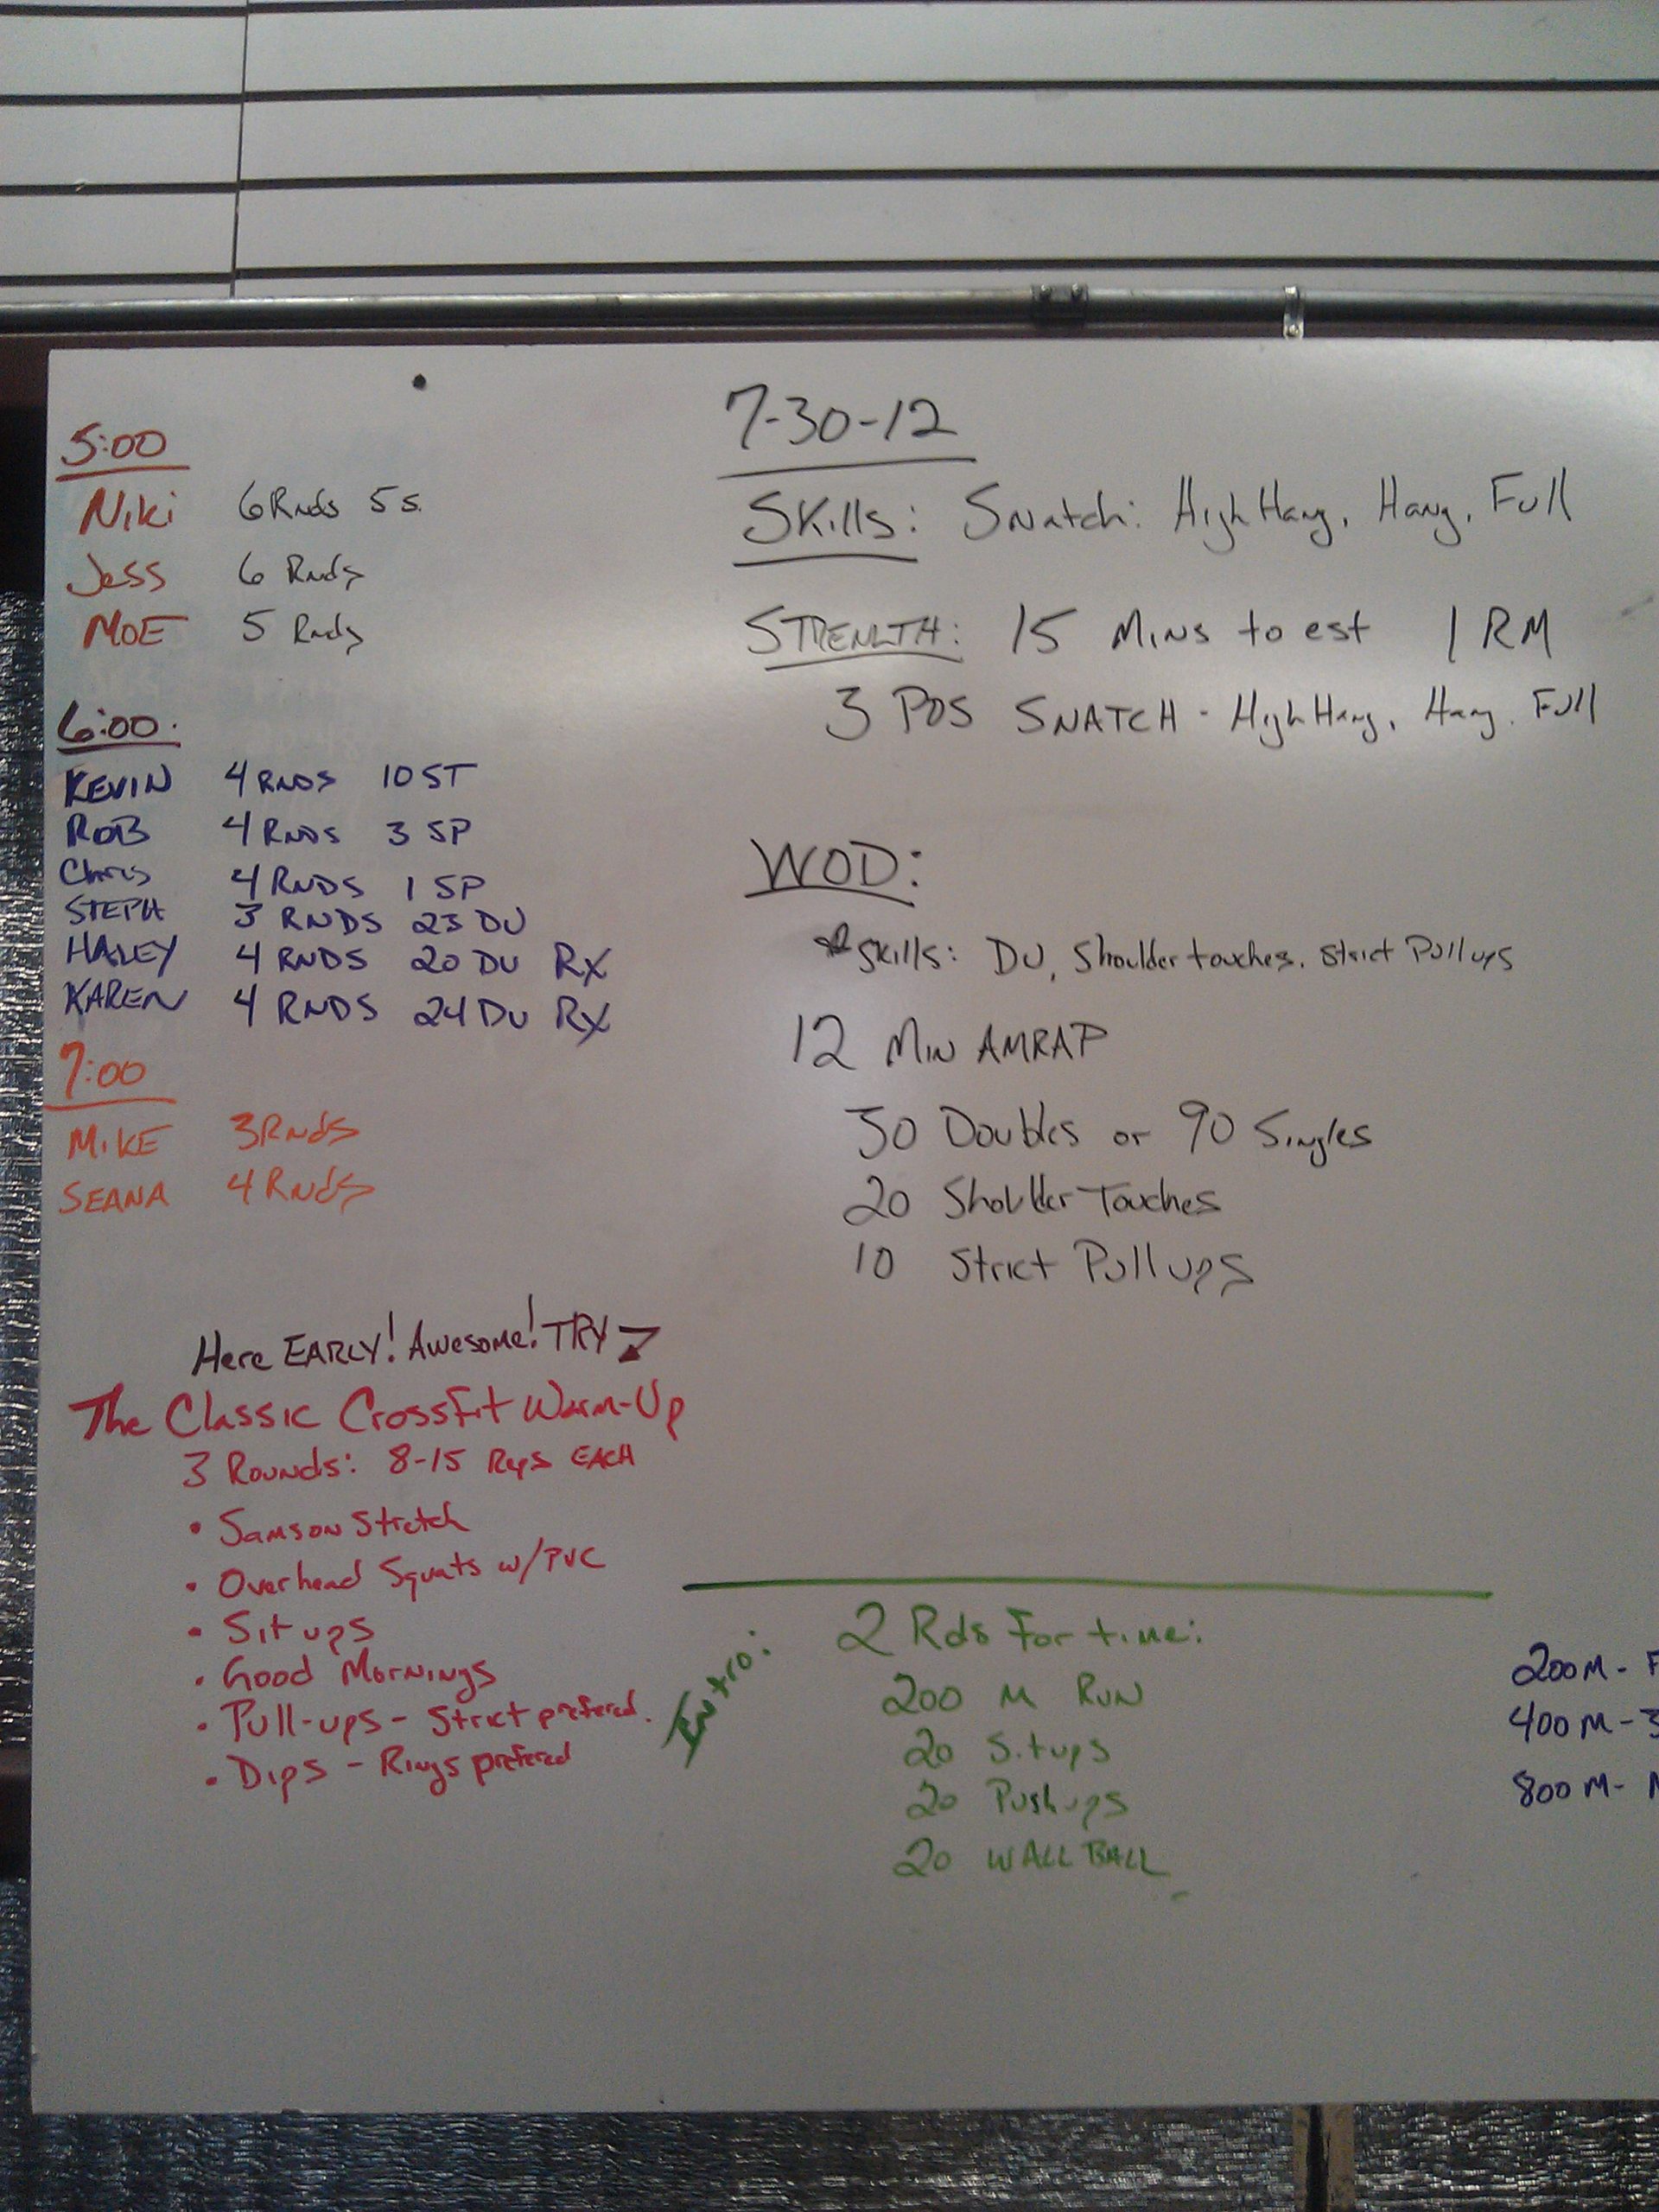 5:00
Niki 6 Rnds 5 s.
Jess 6 Rnds
MOE 5 Rnds
6:00.
KEVIN 4 RNDS 10 ST
ROB 4 RNDS 3 SP
Chris 4 RNDS 1 SP
STEPH 3 RNDS 23 DU
HALEY 4 RNDS 20 DU RX
KAREN 4 RNDS 24 DU RX
7:00
MIKE 3 Rnds
SEANA 4 Rnds
Here EARLY! Awesome! TRY
The Classic CrossFit Warm-Up
3 Rounds: 8-15 Reps EACH
• Samson Stretch
• Overhead Squats w/ PVC
• Sit ups
• Good Mornings
• Pull-ups - Strict prefered.
• Dips - Rings prefered
7-30-12
Skills: Snatch: High Hang, Hang, Full
STRENGTH: 15 Mins to est 1 RM
3 POS SNATCH - High Hang, Hang, Full
WOD:
Skills: DU, Shoulder touches, Strict Pull ups
12 Min AMRAP
30 Doubles or 90 Singles
20 Shoulder Touches
10 Strict Pull ups
Intro:
2 Rds For time:
200 M RUN
20 Situps
20 Push ups
20 WALL BALL
200 M -
400 M - 3
800 M -